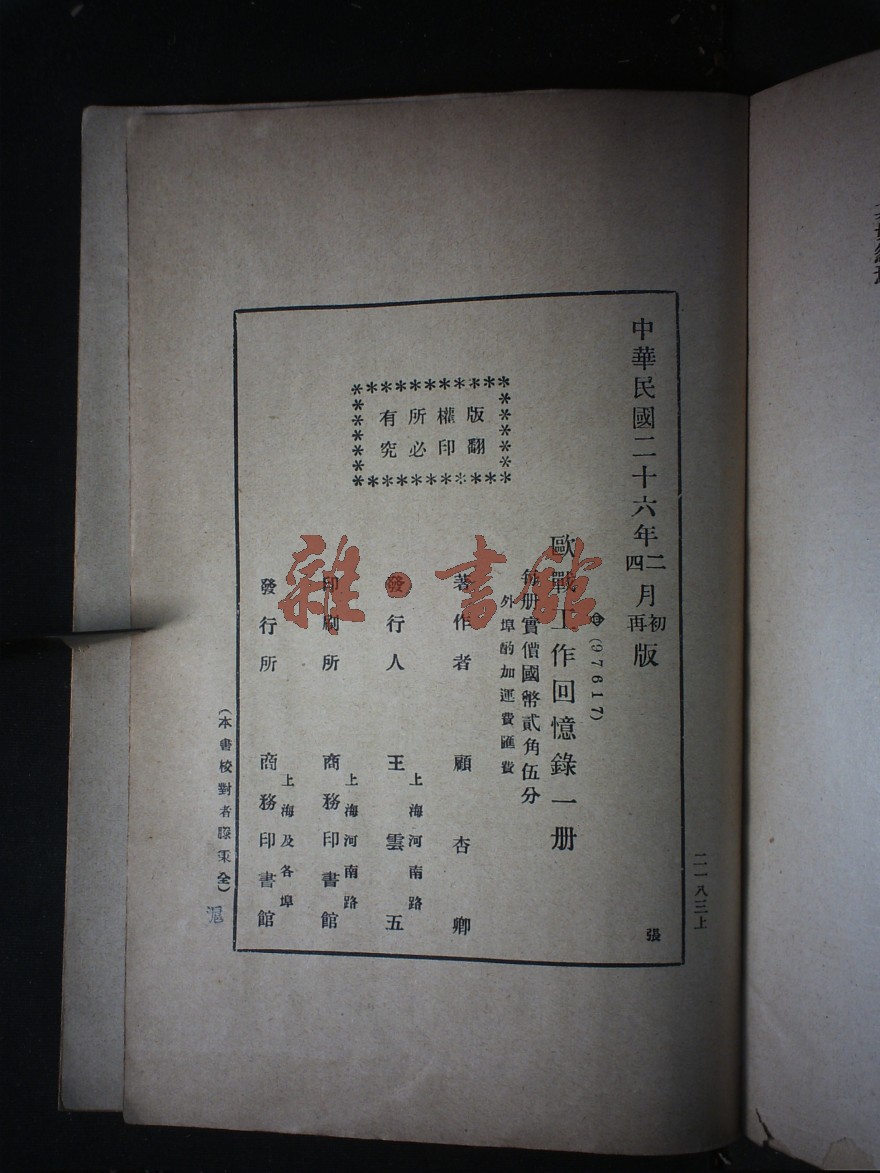 中華民國二十六年二月初版
四再
㊥(97617)
歐戰工作回憶錄一册
每册實價國幣貳角伍分
外埠酌加運費匯費
版權所有
翻印必究
著作者 顧杏卿
發行人 王雲五
上海河南路
印刷所 商務印書館
上海河南路
發行所 商務印書館
上海及各埠
(本書校對者滕秉全)
滬
二一八三上
張
雜·書館